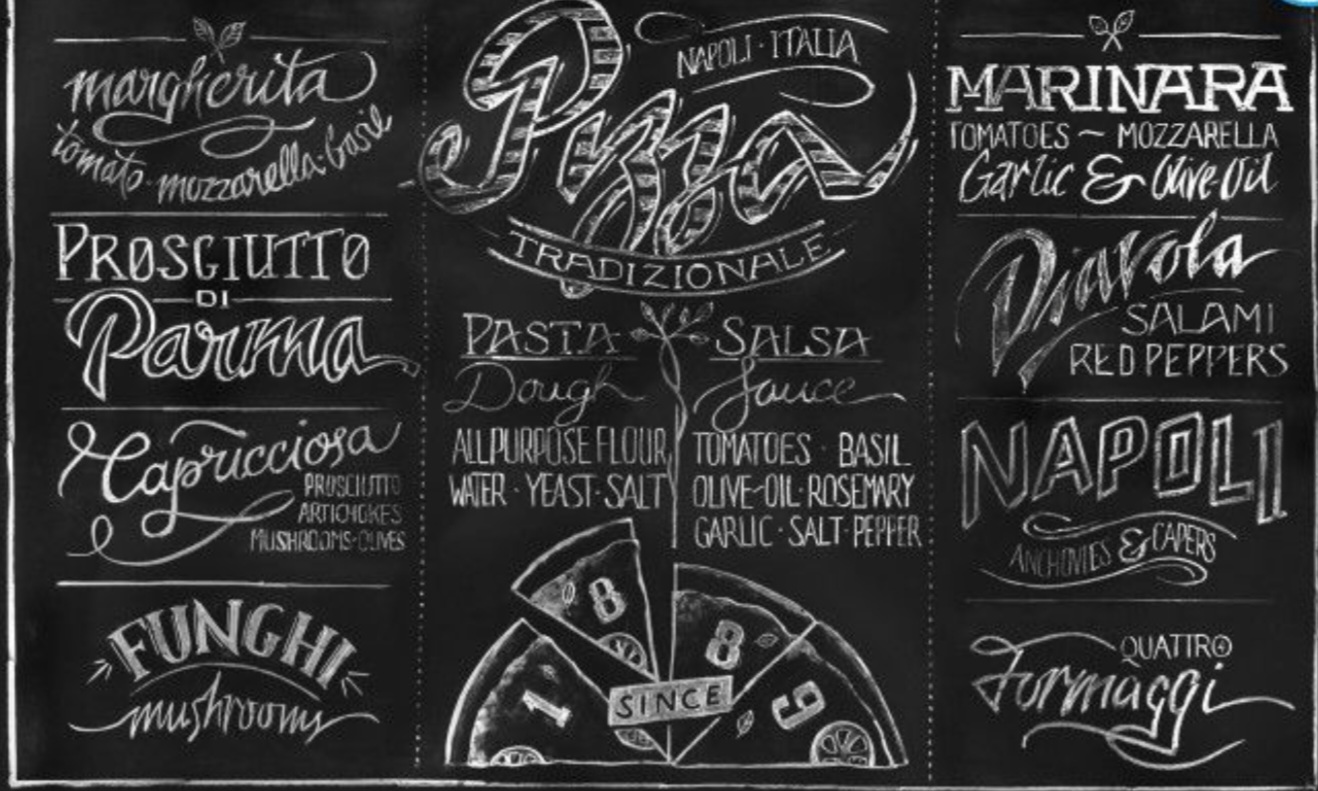 margherita
tomato · mozzarella · basil
PROSCIUTTO
DI
Parma
Capricciosa
PROSCIUTTO
ARTICHOKES
MUSHROOMS · OLIVES
FUNGHI
mushrooms
Pizza
NAPOLI · ITALIA
TRADIZIONALE
PASTA
Dough
ALLPURPOSE FLOUR,
WATER · YEAST · SALT
SALSA
Sauce
TOMATOES · BASIL
OLIVE-OIL · ROSEMARY
GARLIC · SALT · PEPPER
1 8 8 9
SINCE
MARINARA
TOMATOES ~ MOZZARELLA
Garlic & Olive-Oil
Diavola
SALAMI
RED PEPPERS
NAPOLI
ANCHOVIES & CAPERS
QUATTRO
Formaggi